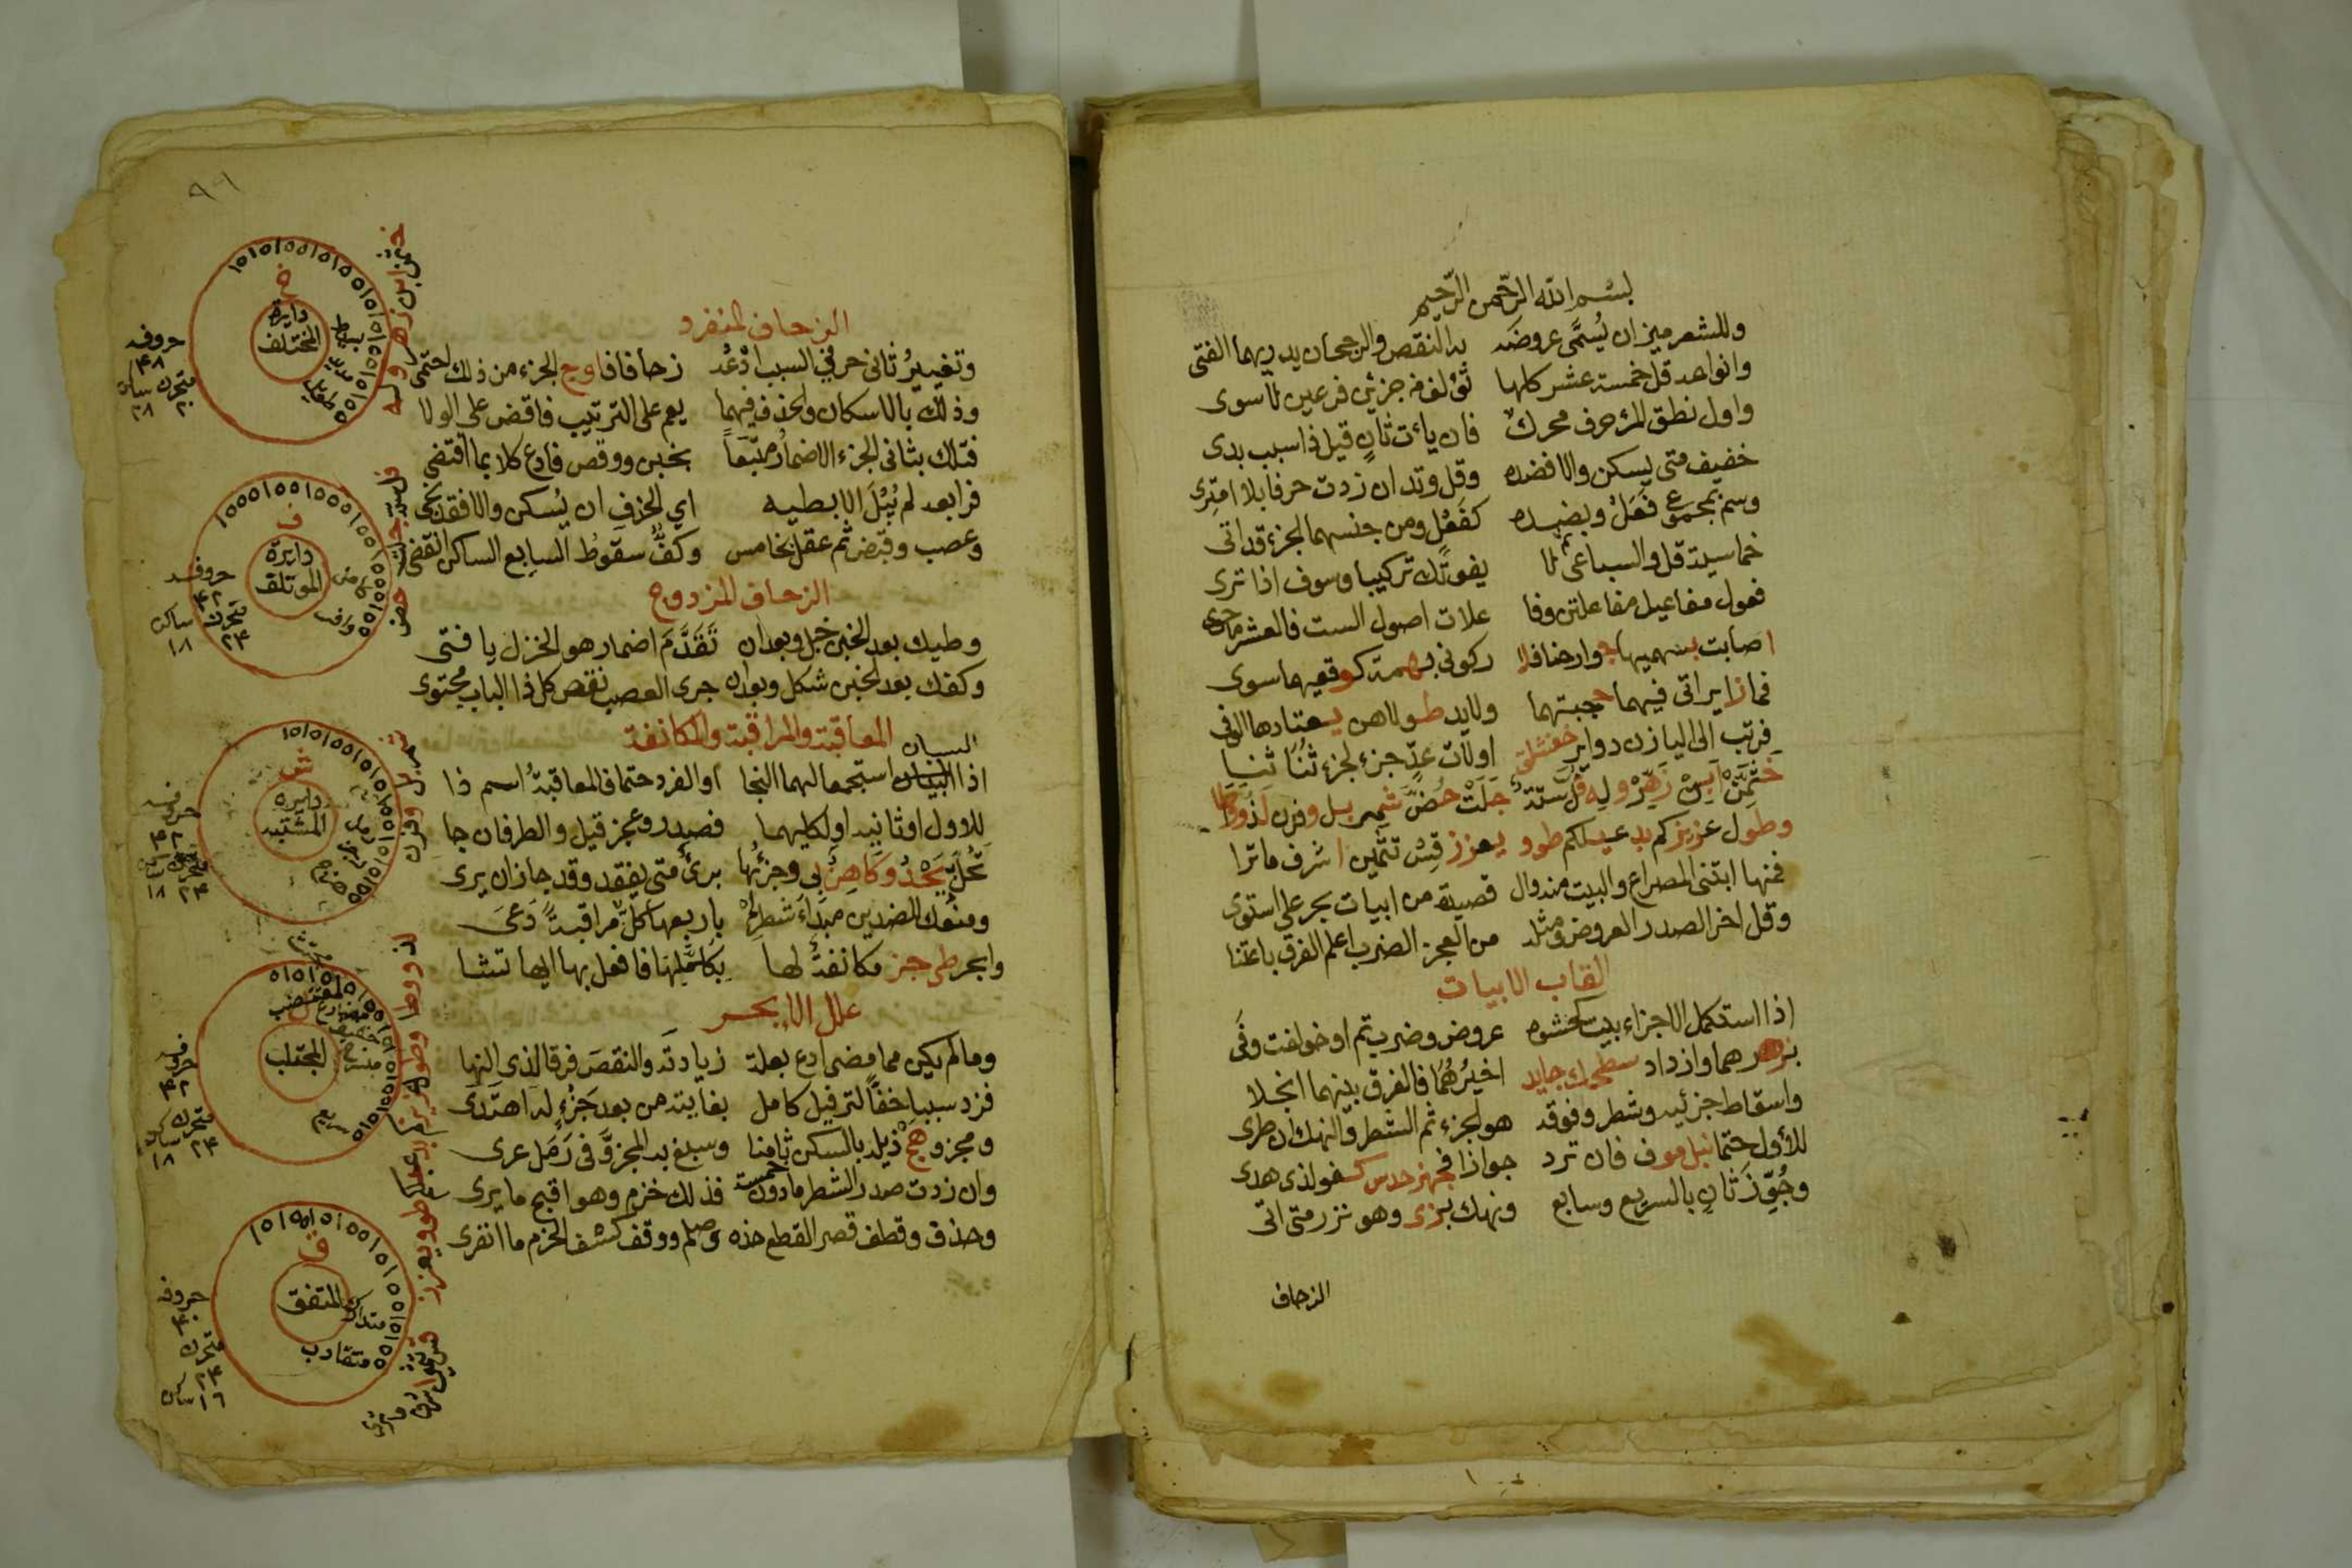 بسم الله الرحمن الرحيم
وللشعر ميزان يُسمَّى عروضه بها النقص والرجحان يدريهما الفتى
وانواعه قل خمسة عشر كلها تؤلف من جزئين فرعين لا سوى
واول نطق المرء حرف محرك فان يأت ثانٍ قيل ذا سبب بدى
خفيف متى يسكن والا فضده وقل وتد ان زدت حرفا بلا امترى
وسم بمجموع فَعَلْ وبضده كفَعْل ومن جنسيهما الجزء قد اتى
خماسيه قل والسباعى ثم لا يفوتك تركيبا وسوف اذا ترى
فعول مفاعيل مفاعلتن وفا علات اصول الست فالعشر ما حوى
اصابت بسهميها جوارحنا فلا ركونى بهمة كوقعيهما سوى
فما زايراتى فيهما حجبتهما ولا يد طولاهن يعتادها الوفى
فرتب الى اليا زن دواير خفشلق اولات عد جزء لجزء ثنا ثنيا
خثمن ابن زهر وله فل ستة جلت حض شمر بل وفرن لذ وطا
وطول عزيز كم بدعبلكم طوو يعزز قس تثمين اشرف ما ترا
فمنها ابتنى المصراع والبيت منه وال قصيدة من ابيات بحر على استوى
وقل اخر الصدر العروض ومثله من العجز الضرب اعلم الفرق باعتنا
القاب الابيات
اذا استكمل الاجزاء بيت كحشوه عروض وضرب تم او خولفت وفى
بزهر هما وازداد سطحك جايد اخيرُهُمَا فالفرق بينهما انجلا
واسقاط جزئيه وشطر وفوقه هو الجزء ثم الشطر والنهك ان طرى
للأول حتما نبل موف فان ترد جوازا فجهز حدس كفو لذى هدى
وجُوِّزَ ثانٍ بالسريع وسابع ونهك بزى وهو نزر متى اتى
الزحاف
٩٦
الزحاف المنفرد
وتغيير ثانى حرفى السبب ادعد زحافا فاوج الجزء من ذلك احتمى
وذلك بالاسكان والحذف فيهما يعم على الترتيب فاقض على الولا
فتلك بثانى الجزء الاضمار متبَعاً بخبن ووقص فادع كلا بما اقتضى
فرابعه لم يُبْلَ الا بطيه اي الحذف ان يُسكن والا فقد نجى
وعصب وقبض ثم عقل بخامس وكفٌّ سقوطُ السابع الساكن انقضى
الزحاف المزدوج
وطيك بعد الخبن خبل وبعد ان تَقَدَّمَ اضمار هو الخزل يا فتى
وكفك بعد الخبن شكل وبعد ان جرى العصب نقص كل ذا الباب مجتوى
المعاقبة والمراقبة والمكانفة
السببان
اذا السببان استجمعا لهما النجا او الفرد حتما فالمعاقبة اسم ذا
للاول او ثانيه او لكليهما فصدر وعجز قيل والطرفان جا
تحلّ يَحْدُ وكاهن بى وجزئها برئ متى يفقد وقد جاز ان يرى
ومنعك للضدين مبدَاَ شطر لم باربعها كل مراقبة دعى
وابحر طى جز مكانفة لها بكلمتها فافعل بها ايها تشا
علل الابحر
وما لم يكن مما مضى ادع بعلة زيادته والنقص فرقا لذى النها
فزد سببا خفّا لترفيل كامل بغايته من بعد جزء له اهتدى
ومجزو هج ذيله بالسكن ثامنا وسبغ به المجزوّ فى رَمَل عرى
وان زدت صدر الشطر مادون خمسة فذلك خزم وهو اقبح ما يرى
وحذف وقطف قصر القطع حذه وصلم ووقف كشف الخزم ما انفرى
خثمن ابن زهر وله
خ
دايرة
المختلف
طويل
مديد
بسيط
حروفه
٤٨
متحرك ساكن
٢٨ ٢٠
فل ستة جلت حض
ف
دايرة
الموتلف
وافر
كامل
حروفه
٤٢
متحرك ٢٤
ساكن ١٨
شمر بل وفرن
ش
دايرة
المشتبه
هزج
رجز
رمل
حروفه
٤٢
متحرك ساكن
٢٤ ١٨
لذ وطا وطول عزيز كم بدعبلكم طوو يعزز
المجتلب
سريع
منسرح
خفيف
مضارع
مقتضب
مجتث
حروفه
٤٢
متحرك ساكن
٢٤ ١٨
قس تثمين اشرف ما ترى
ق
المتفق
متقارب
متدارك
حروفه
٤٠
متحرك
٢٤
١٦ ساكن